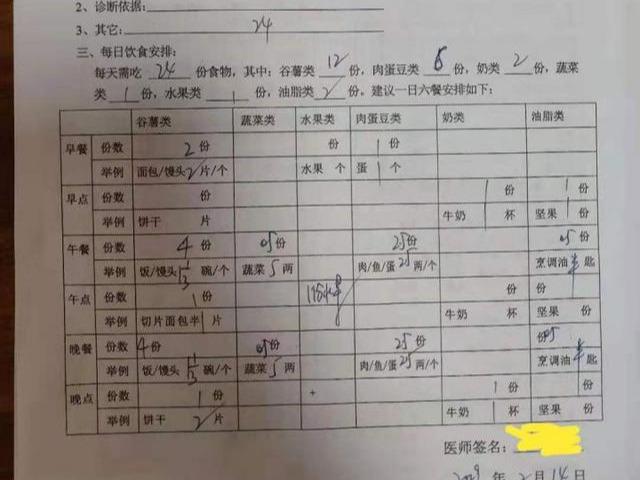 2、诊断依据:
3、其它: 24
三、每日饮食安排:
每天需吃 24 份食物，其中：谷薯类 12 份，肉蛋豆类 6 份，奶类 2 份，蔬菜
类 1 份，水果类 1 份，油脂类 2 份，建议一日六餐安排如下：
谷薯类 蔬菜类 水果类 肉蛋豆类 奶类 油脂类
早餐 份数 2 份 份 1 份
举例 面包/馒头 2 片/个 水果 个 蛋 1 个
早点 份数 份 1 份 1 份
举例 饼干 片 牛奶 1 杯 坚果 1 份
午餐 份数 4 份 0.5 份 2.5 份 0.5 份
举例 饭/馒头 碗/个 蔬菜 5 两 肉/鱼/蛋 2.5 两/个 烹调油 半 匙
午点 份数 1 份 份 份
举例 切片面包半 1 片 牛奶 杯 坚果 份
晚餐 份数 4 份 0.5 份 2.5 份 份 0.5
举例 饭/馒头 碗/个 蔬菜 5 两 肉/鱼/蛋 2.5 两/个 烹调油 半 匙
晚点 份数 1 份 1 份 份
举例 饼干 2 片 牛奶 1 杯 坚果 份
医师签名:
年 2 月 14 日